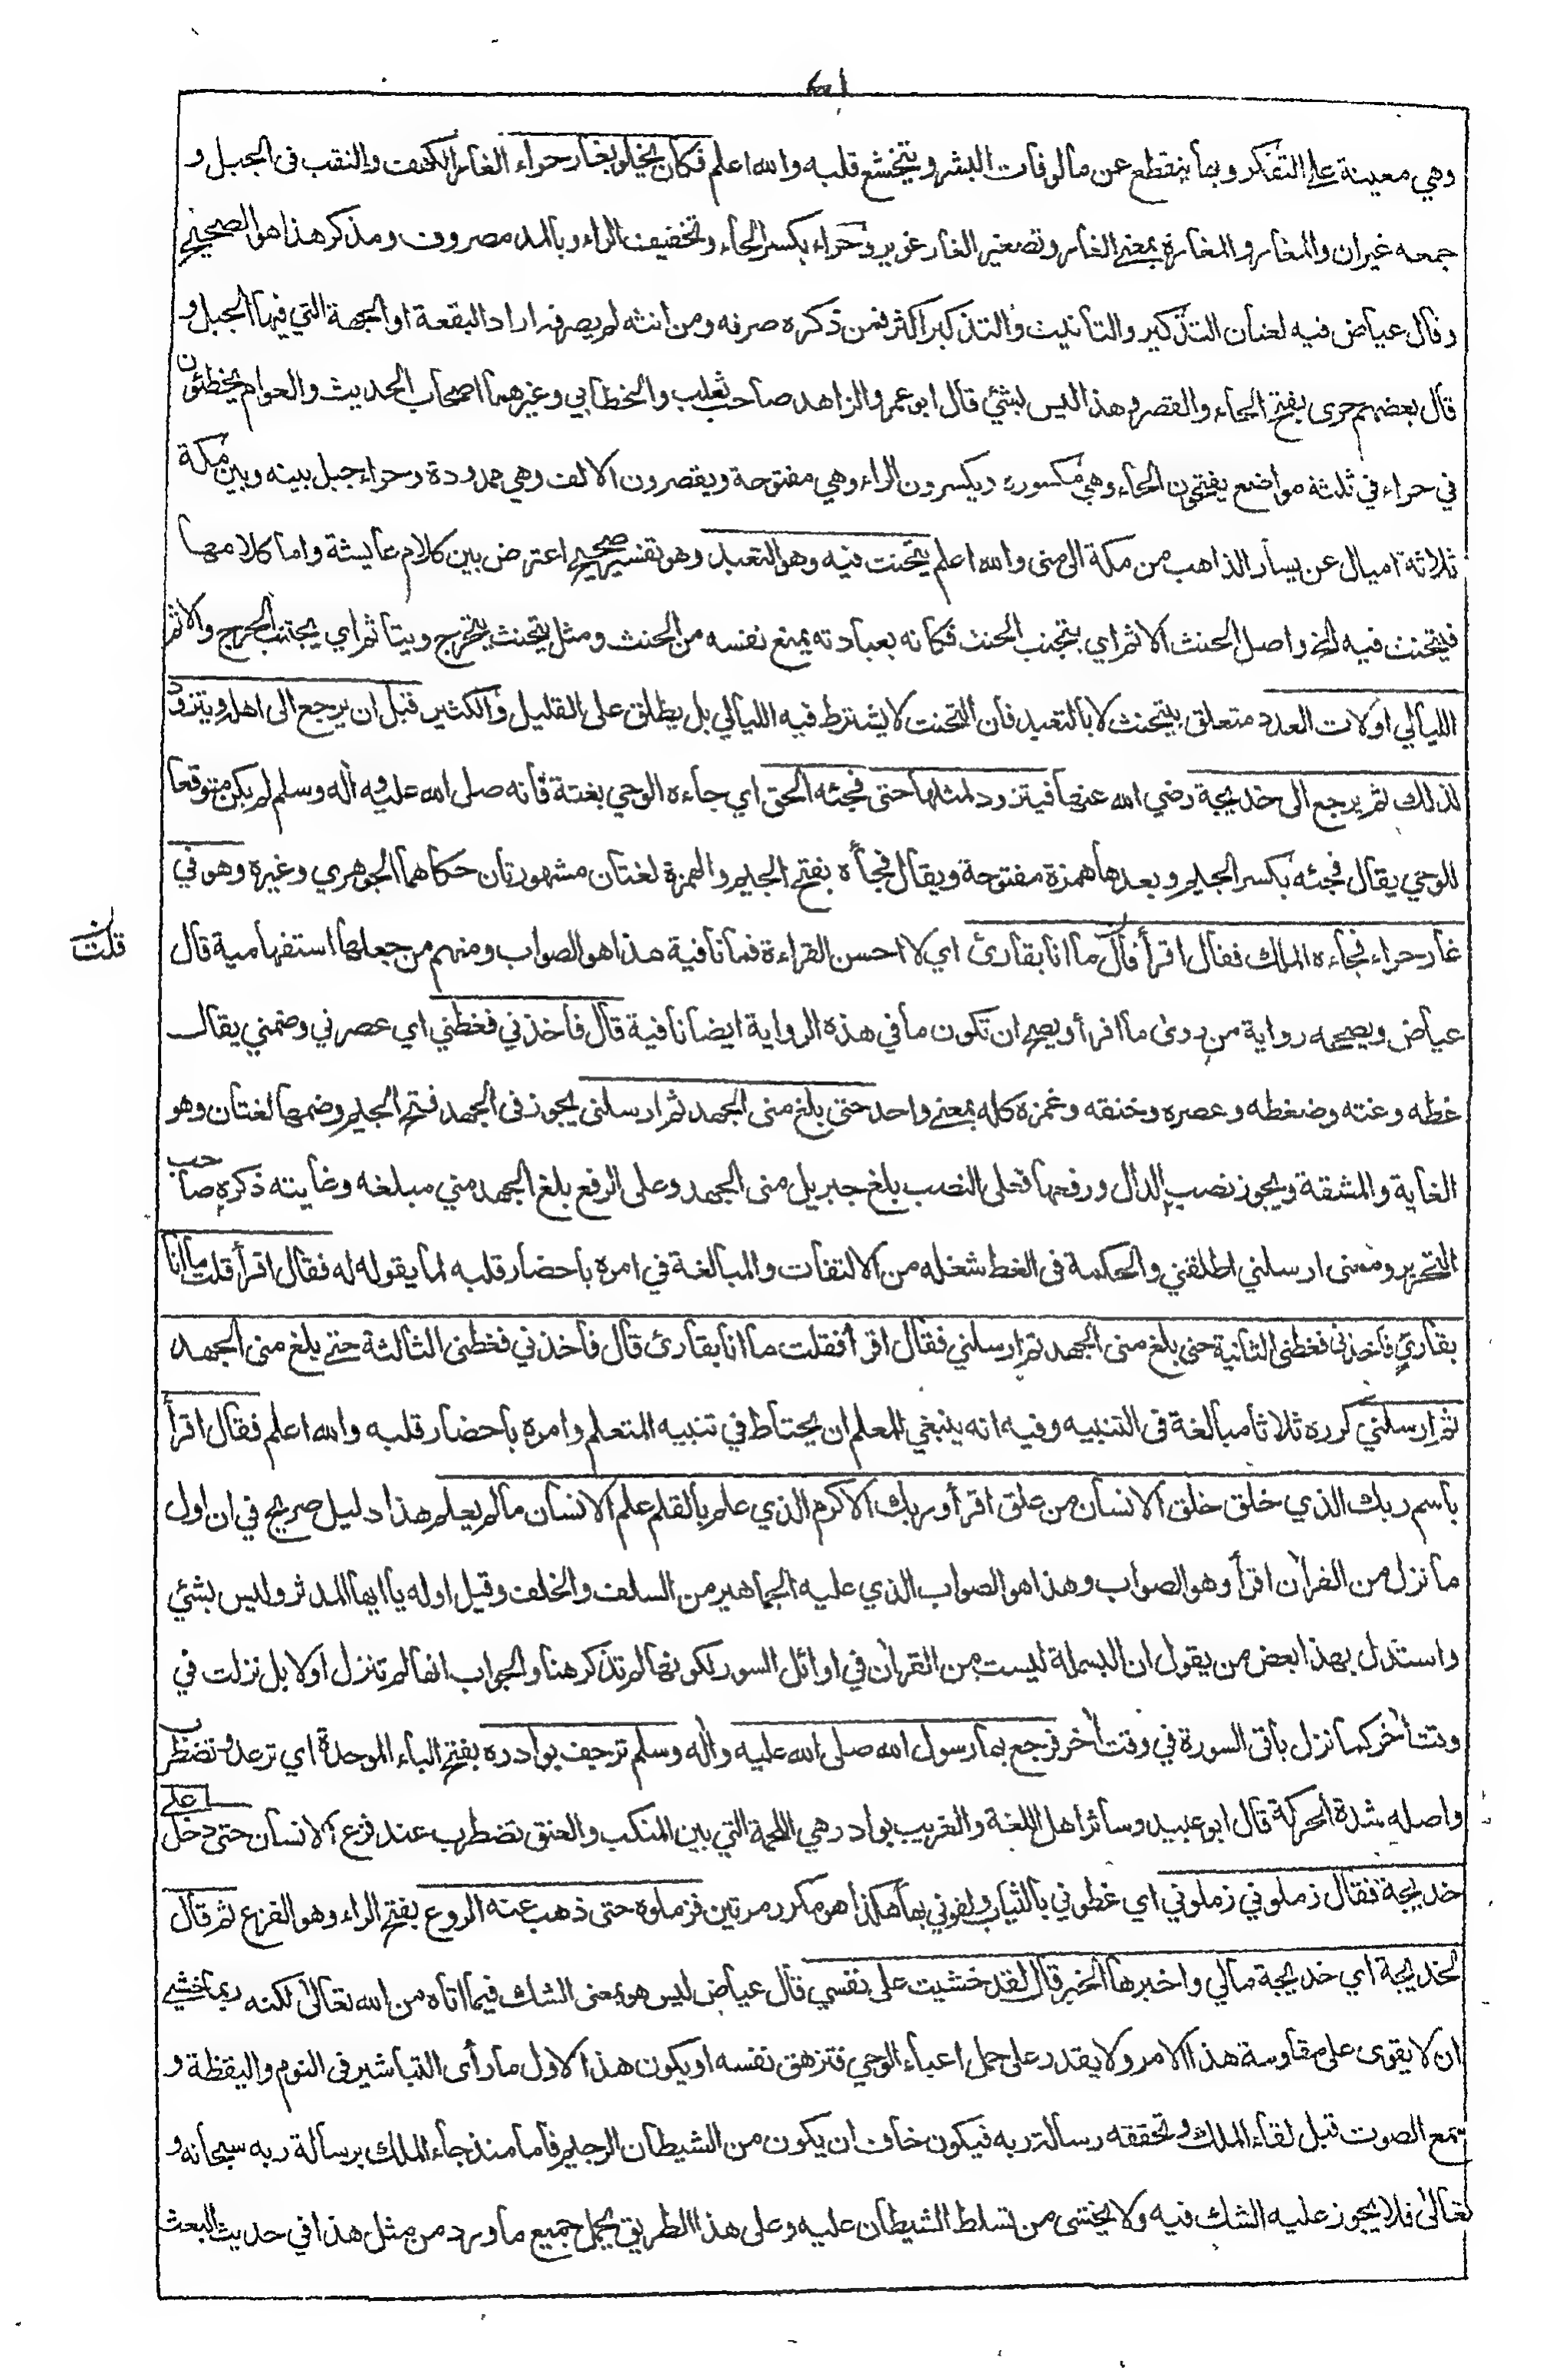 وهي معينة على التفكر وبها ينقطع عن مالوفات البشر ويتخشع قلبه والله اعلم فكان يخلو بغار حراء الغار الكهف والنقب فى الجبل و
جمعه غيران والمغار والمغارة بمعنى الغار وتصغير الغار غوير وحراء بكسر الحاء وتخفيف الراء وبالمد مصروف ومذكر هذا هو الصحيح
وقال عياض فيه لغتان التذكير والتأنيث والتذكير اكثر فمن ذكره صرفه ومن انثه لم يصرفه اراد البقعة او الجهة التي فيها الجبل و
قال بعضهم حرى بفتح الحاء والقصر وهذا ليس بشئي قال ابو عمر والزاهد صاحب ثعلب والخطابي وغيرهما اصحاب الحديث والعوام يخطئون
في حراء في ثلثة مواضع يفتحون الحاء وهي مكسورة ويكسرون الراء وهي مفتوحة ويقصرون الالف وهي ممدودة وحراء جبل بينه وبين مكة
ثلاثة اميال عن يسار الذاهب من مكة الى منى والله اعلم يتحنث فيه وهو التعبد وهو تفسير صحيح اعترض بين كلام عايشة واما كلامها
فيتحنث فيه الخ واصل الحنث الاثم اي يتجنب الحنث فكانه بعبادته يمنع نفسه من الحنث ومثل يتحنث يتحرج ويتاثم اي يجتنب الحرج والاثم
الليالي اولات العدد متعلق بيتحنث لا بالتعبد فان التحنث لا يشترط فيه الليالي بل يطلق على القليل والكثير قبل ان يرجع الى اهله ويتزود
لذلك ثم يرجع الى خديجة رضي الله عنها فيتزود لمثلها حتى فجئه الحق اي جاءه الوحي بغتة فانه صلى الله عليه وآله وسلم لم يكن متوقعا
للوحي يقال فجئه بكسر الجيم وبعدها همزة مفتوحة ويقال فجأه بفتح الجيم والهمزة لغتان مشهورتان حكاهما الجوهري وغيره وهو في
غار حراء فجاءه الملك فقال اقرأ قال ما انا بقارئ اي لا احسن القراءة فما نافية هذا هو الصواب ومنهم من جعلها استفهامية قال
قلت
عياض ويصححه رواية من روى ما اقرأ ويصح ان تكون ما في هذه الرواية ايضا نافية قال فاخذني فغطني اي عصرني وضمني يقال
غطه وغته وضغطه وعصره وخنقه وغمزه كله بمعنى واحد حتى بلغ منى الجهد ثم ارسلنى يجوز فى الجهد فتح الجيم وضمها لغتان وهو
الغاية والمشقة ويجوز نصب الدال ورفعها فعلى النصب بلغ جبريل منى الجهد وعلى الرفع بلغ الجهد مني مبلغه وغايته ذكره صاحب
التحرير ومعنى ارسلني اطلقني والحكمة فى الغط شغله من الالتفات والمبالغة في امره باحضار قلبه لما يقوله له فقال اقرأ قلت ما انا
بقارئ فاخذنى فغطنى الثانية حتى بلغ منى الجهد ثم ارسلني فقال اقرأ فقلت ما انا بقارئ قال فاخذني فغطنى الثالثة حتى بلغ منى الجهد
ثم ارسلني كرره ثلاثا مبالغة فى التنبيه وفيه انه ينبغي للمعلم ان يحتاط في تنبيه المتعلم وامره باحضار قلبه والله اعلم فقال اقرأ
باسم ربك الذي خلق خلق الانسان من علق اقرأ وربك الاكرم الذي علم بالقلم علم الانسان ما لم يعلم هذا دليل صريح في ان اول
ما نزل من القرآن اقرأ وهو الصواب وهذا هو الصواب الذي عليه الجماهير من السلف والخلف وقيل اوله يا ايها المدثر وليس بشئي
واستدل بهذا بعض من يقول ان البسملة ليست من القرآن في اوائل السور لكونها لم تذكر هنا والجواب انها لم تنزل اولا بل نزلت في
وقت آخر كما نزل باقى السورة في وقت آخر فرجع بها رسول الله صلى الله عليه وآله وسلم ترجف بوادره بفتح الباء الموحدة اي ترعد وتضطرب
واصله شدة الحركة قال ابو عبيد وسائر اهل اللغة والغريب بوادر هي اللحمة التي بين المنكب والعنق تضطرب عند فزع الانسان حتى دخل على
خديجة فقال زملوني زملوني اي غطوني بالثياب ولفوني بها هكذا هو مكرر مرتين فزملوه حتى ذهب عنه الروع بفتح الراء وهو الفزع ثم قال
لخديجة اي خديجة مالي واخبرها الخبر قال لقد خشيت على نفسي قال عياض ليس هو بمعنى الشك فيما اتاه من الله تعالى لكنه ربما خشي
ان لا يقوى على مقاومة هذا الامر ولا يقدر على حمل اعباء الوحي فتزهق نفسه او يكون هذا الاول ما رأى التباشير فى النوم واليقظة و
يسمع الصوت قبل لقاء الملك وتحققه رسالة ربه فيكون خاف ان يكون من الشيطان الرجيم فاما منذ جاء الملك برسالة ربه سبحانه و
تعالى فلا يجوز عليه الشك فيه ولا يخشى من تسلط الشيطان عليه وعلى هذا الطريق يحمل جميع ما ورد من مثل هذا في حديث البعث